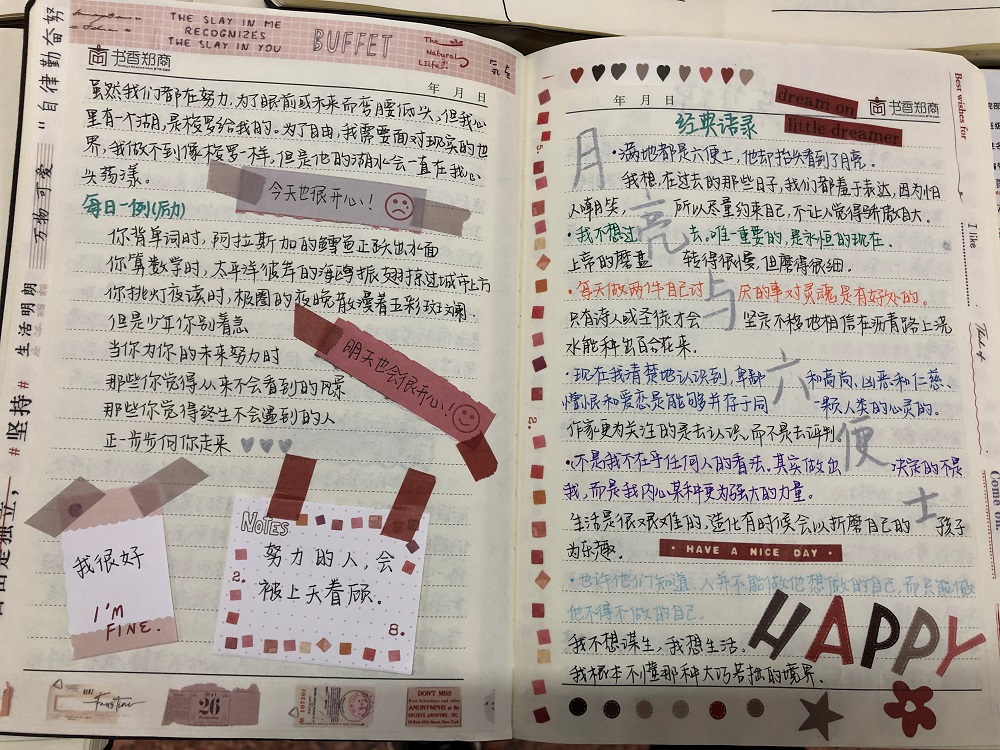 THE SLAY IN ME
RECOGNIZES
THE SLAY IN YOU
BUFFET
The
Natural
书香郑商
年 月 日
虽然我们都在努力,为了眼前或未来而弯腰低头,但我心
里有一个湖,是梭罗给我的。为了自由,我需要面对现实的世
界,我做不到像梭罗一样,但是他的湖水会一直在我心
头荡漾。
今天也很开心!
每日一例(励)
你背单词时,阿拉斯加的鳕鱼正跃出水面
你算数学时,太平洋彼岸的海鸥振翅掠过城市上方
你挑灯夜读时,极圈的夜晚散漫着五彩斑斓
但是少年你别着急
当你为你的未来努力时
那些你觉得从来不会看到的风景
那些你觉得终生不会遇到的人
正一步步向你走来
明天也会很开心!
我很好
I'M
FINE.
NOTES
努力的人,会
被上天眷顾.
2.
8.
26
DON'T MISS
ANONYMPHS
"自律勤奋努
万物可爱
生活明朗
#坚持#
自由是独立,
书香郑商
年 月 日
dream on
little dreamer
Best wishes for
I like
Think of
Come
5.
2.
经典语录
月亮与六便士
·满地都是六便士,他却抬头看到了月亮.
我想,在过去的那些日子,我们都羞于表达,因为怕
人嘲笑, 所以尽量约束自己,不让人觉得骄傲自大.
·我不想过去。唯一重要的,是永恒的现在.
上帝的磨盘 转得很慢,但磨得很细.
·每天做两件自己讨厌的事对灵魂是有好处的。
只有诗人或圣徒才会 坚定不移地相信在沥青路上浇
水能种出百合花来.
·现在我清楚地认识到,卑鄙 和高尚、凶恶和仁慈、
憎恨和爱恋是能够并存于同 一颗人类的心灵的。
作家更为关注的是去认识,而不是去评判.
·不是我不在乎任何人的看法,其实做出 决定的不是
我,而是我内心某种更为强大的力量。
生活是很艰难的,造化有时候会以折磨自己的 孩子
为乐趣.
HAVE A NICE DAY
·也许他们知道 人并不能做他想做的自己,而只能做
他不得不做的自己.
我不想谋生,我想生活.
我根本不懂那种大巧若拙的境界.
HAPPY